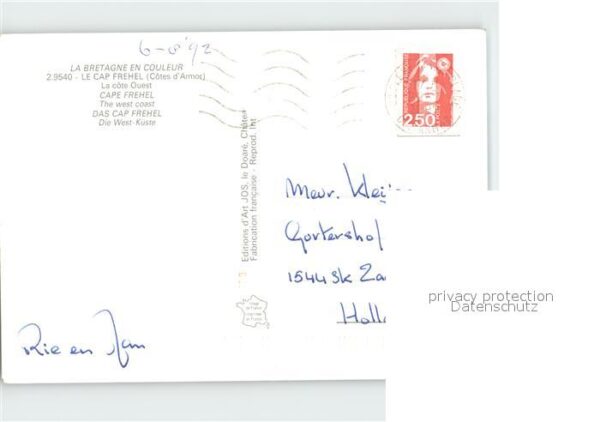 6-8'92
LA BRETAGNE EN COULEUR
2.9540 - LE CAP FREHEL (Côtes d'Armor)
La côte Ouest
CAPE FREHEL
The west coast
DAS CAP FREHEL
Die West-Küste
2,50
Editions d'Art JOS, le Doaré, Châteu
Fabrication française - Reprod. Int
Mevr. Klei
Gortershof
1544 SK Za
Holl
Rie en Jan
privacy protection
Datenschutz